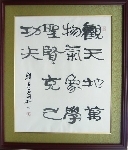 觀天地萬
物氣象學
聖賢克己
功夫